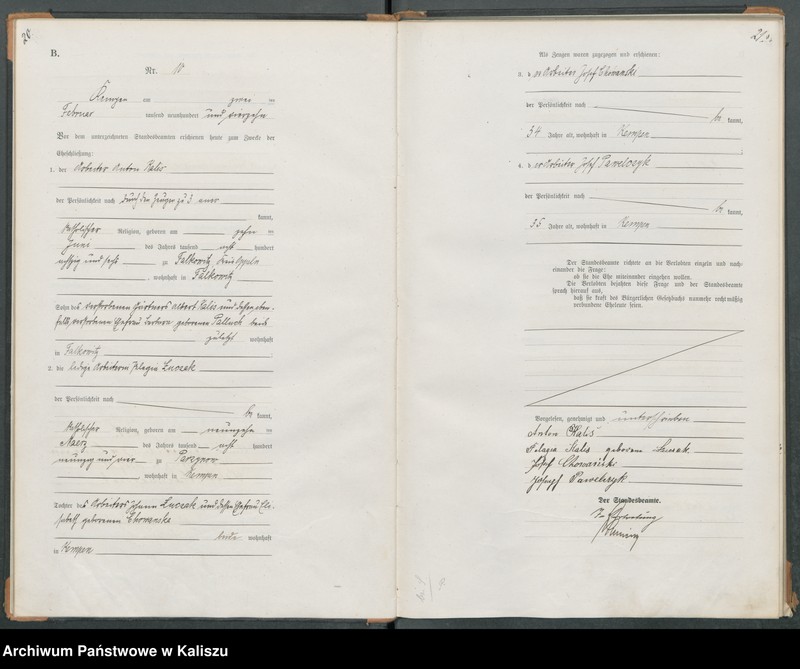 20
B.
Nr.
Kempen am zwei ten
Februar tausend neunhundert und vierzehn
Vor dem unterzeichneten Standesbeamten erschienen heute zum Zwecke der
Eheschließung:
1. der Arbeiter Anton Kalis
der Persönlichkeit nach durch den Zeugen zu 3 aner
kannt,
katholischer Religion, geboren am zehn ten
Juni des Jahres tausend acht hundert
achtzig und sechs zu Falkowitz, Kreis Oppeln
, wohnhaft in Falkowitz
Sohn des verstorbenen Gärtners Albert Kalis und dessen eben-
falls verstorbenen Ehefrau Barbara geborenen beide
zuletzt wohnhaft
in Falkowitz
2. die ledige Arbeiterin Pelagia Luczak
der Persönlichkeit nach
be kannt,
katholischer Religion, geboren am neunzehn ten
März des Jahres tausend acht hundert
neunzig und vier zu
, wohnhaft in Kempen
Tochter des Arbeiters Johann Luczak und dessen Ehefrau Eli-
sabeth geborenen Chowanska
beide wohnhaft
in Kempen
Als Zeugen waren zugezogen und erschienen:
3. der Arbeiter Josef Chowanski
der Persönlichkeit nach
be kannt,
54 Jahre alt, wohnhaft in Kempen
4. der Arbeiter Josef Pawelczyk
der Persönlichkeit nach
be kannt,
35 Jahre alt, wohnhaft in Kempen
Der Standesbeamte richtete an die Verlobten einzeln und nach-
einander die Frage:
ob sie die Ehe miteinander eingehen wollen.
Die Verlobten bejahten diese Frage und der Standesbeamte
sprach hierauf aus,
daß sie kraft des Bürgerlichen Gesetzbuchs nunmehr rechtmäßig
verbundene Eheleute seien.
Vorgelesen, genehmigt und unterschrieben
Anton Kalis
Pelagia Kalis geborene Luczak
Josef Chowański
Józef Pawelczyk
Der Standesbeamte.
In Vertretung
Archiwum Państwowe w Kaliszu